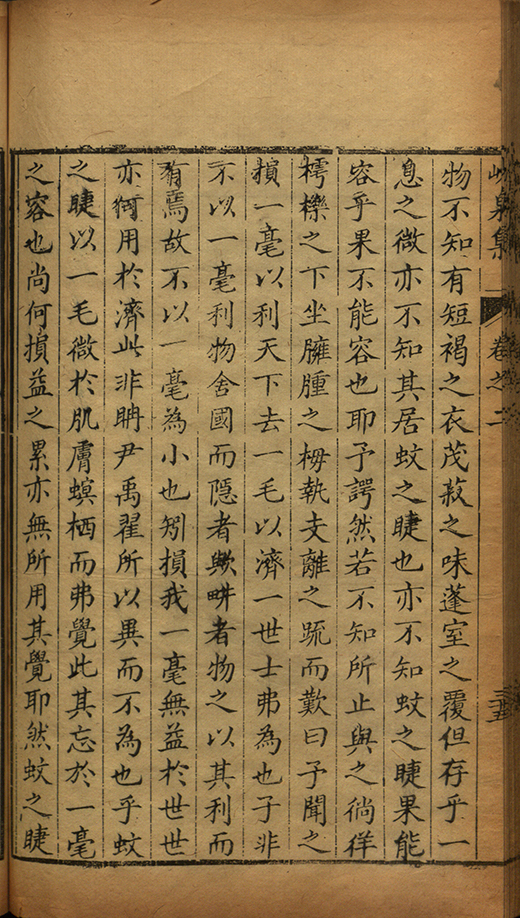 峴泉集 卷之二
物不知有短褐之衣茂菽之味蓬室之覆但存乎一
息之微亦不知其居蚊之睫也亦不知蚊之睫果能
容乎果不能容也耶予諤然若不知所止與之徜徉
樗櫟之下坐臃腫之栂執支離之䟽而歎曰予聞之
損一毫以利天下去一毛以濟一世士弗為也子非
不以一毫利物舍國而隱者歟畊者物之以其利而
有焉故不以一毫為小也矧損我一毫無益於世世
亦何用於濟此非聃尹禹翟所以異而不為也乎蚊
之睫以一毛微於肌膚螟栖而弗覺此其忘於一毫
之容也尚何損益之累亦無所用其覺耶然蚊之睫